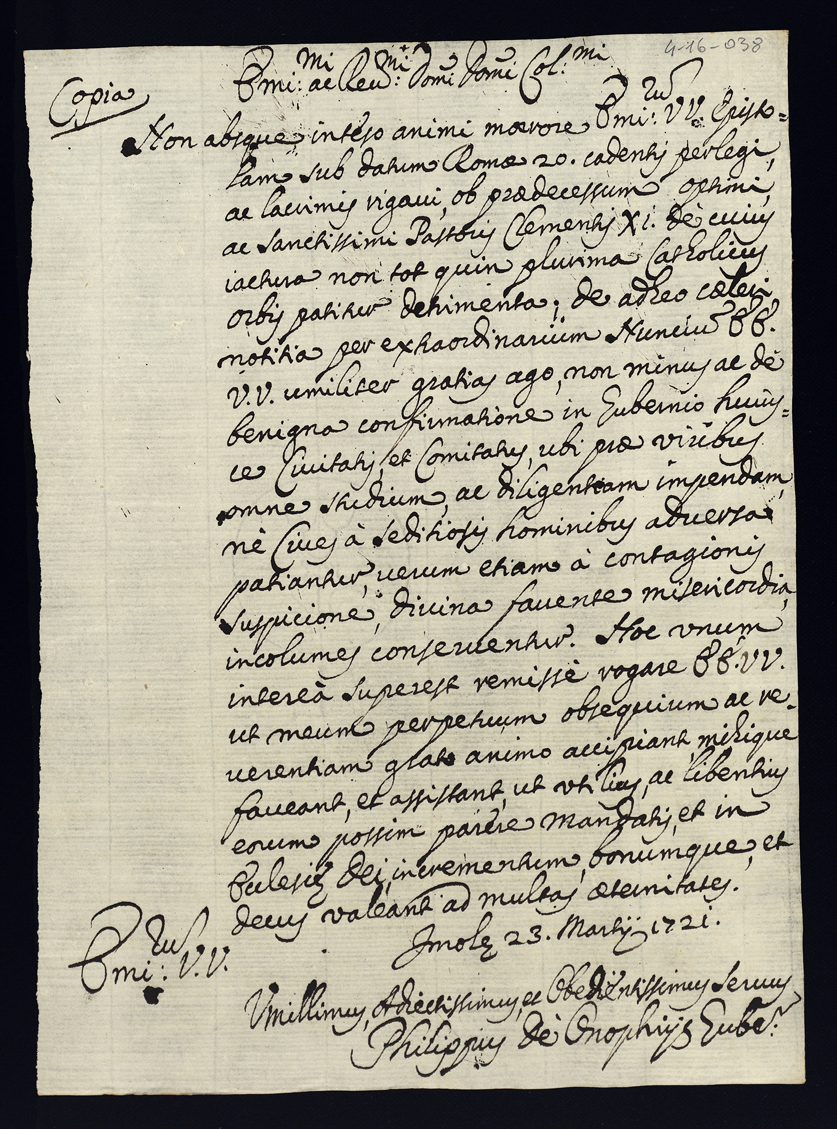 4-16-038
Emi:mi ac Reu:mi Domi Domi Col:mi
Copia
Non absque intẽso animi mœrore Emi:rũ VV. Episto=
lam sub datum Romæ 20. cadentis perlegi,
ac lacrimis rigaui, ob prædecessum optimi,
ac Sanctissimi Pastoris Clementis XI. dè cuius
iactura non tot quin plurima Catholicus
orbis patitur detrimenta; de adreo cæleri
notitia per extraordinariũm Nunciũ EE.
V.V. umiliter gratias ago, non minus ac dè
benigna confirmatione in Gubernio huius=
ce Ciuitatis, et Comitatus, ubi præ viribus
omne studium, ac diligentiam impendam,
nè Ciues à seditiosis hominibus aduersa
patiantur, uerum etiam à contagionis
suspicione, diuina fauente misericordia,
incolumes conseruentur. Hoc vnum
intereà superest remissè rogare EE.VV.
ut meum perpetuum obsequium ac re-
uerentiam grato animo accipiant, mihique
faueant, et assistant, ut vtilius, ac libentius
eorum possim parére mandatis, et in
Eclesię Dei, incrementum, bonumque, et
decus valeant ad multas æternitates.
Imolę 23. Martij 1721.
Emi:rũ V.V.
Vmillimus, Addictissimus, et Obedientissimus Seruus
Philippus Dè Onophrijs Gube:r